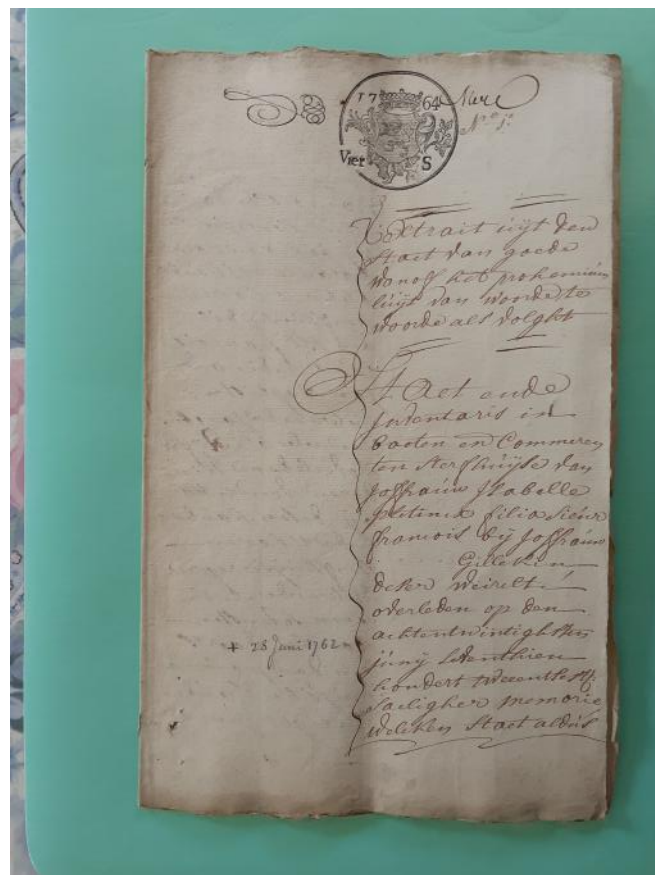 17 64 Mere
N.º 1.º
Vier S
Extrait uijt den
Staet van goede
vanoff het prohemium
luijt van woorde te
woorde als volght
Staet ende
Inventaris in
baeten en Commeren
ten sterfhuijse van
Joffrauw Isabelle
filia sieur
francois bij Joffrauw
Gillekin
deser weirelt
overleden op den
achtentwintighsten
+ 28 Juni 1762
junij seventhien
hondert tweentsestigh
saeligher memorie
welcken Staet aldus